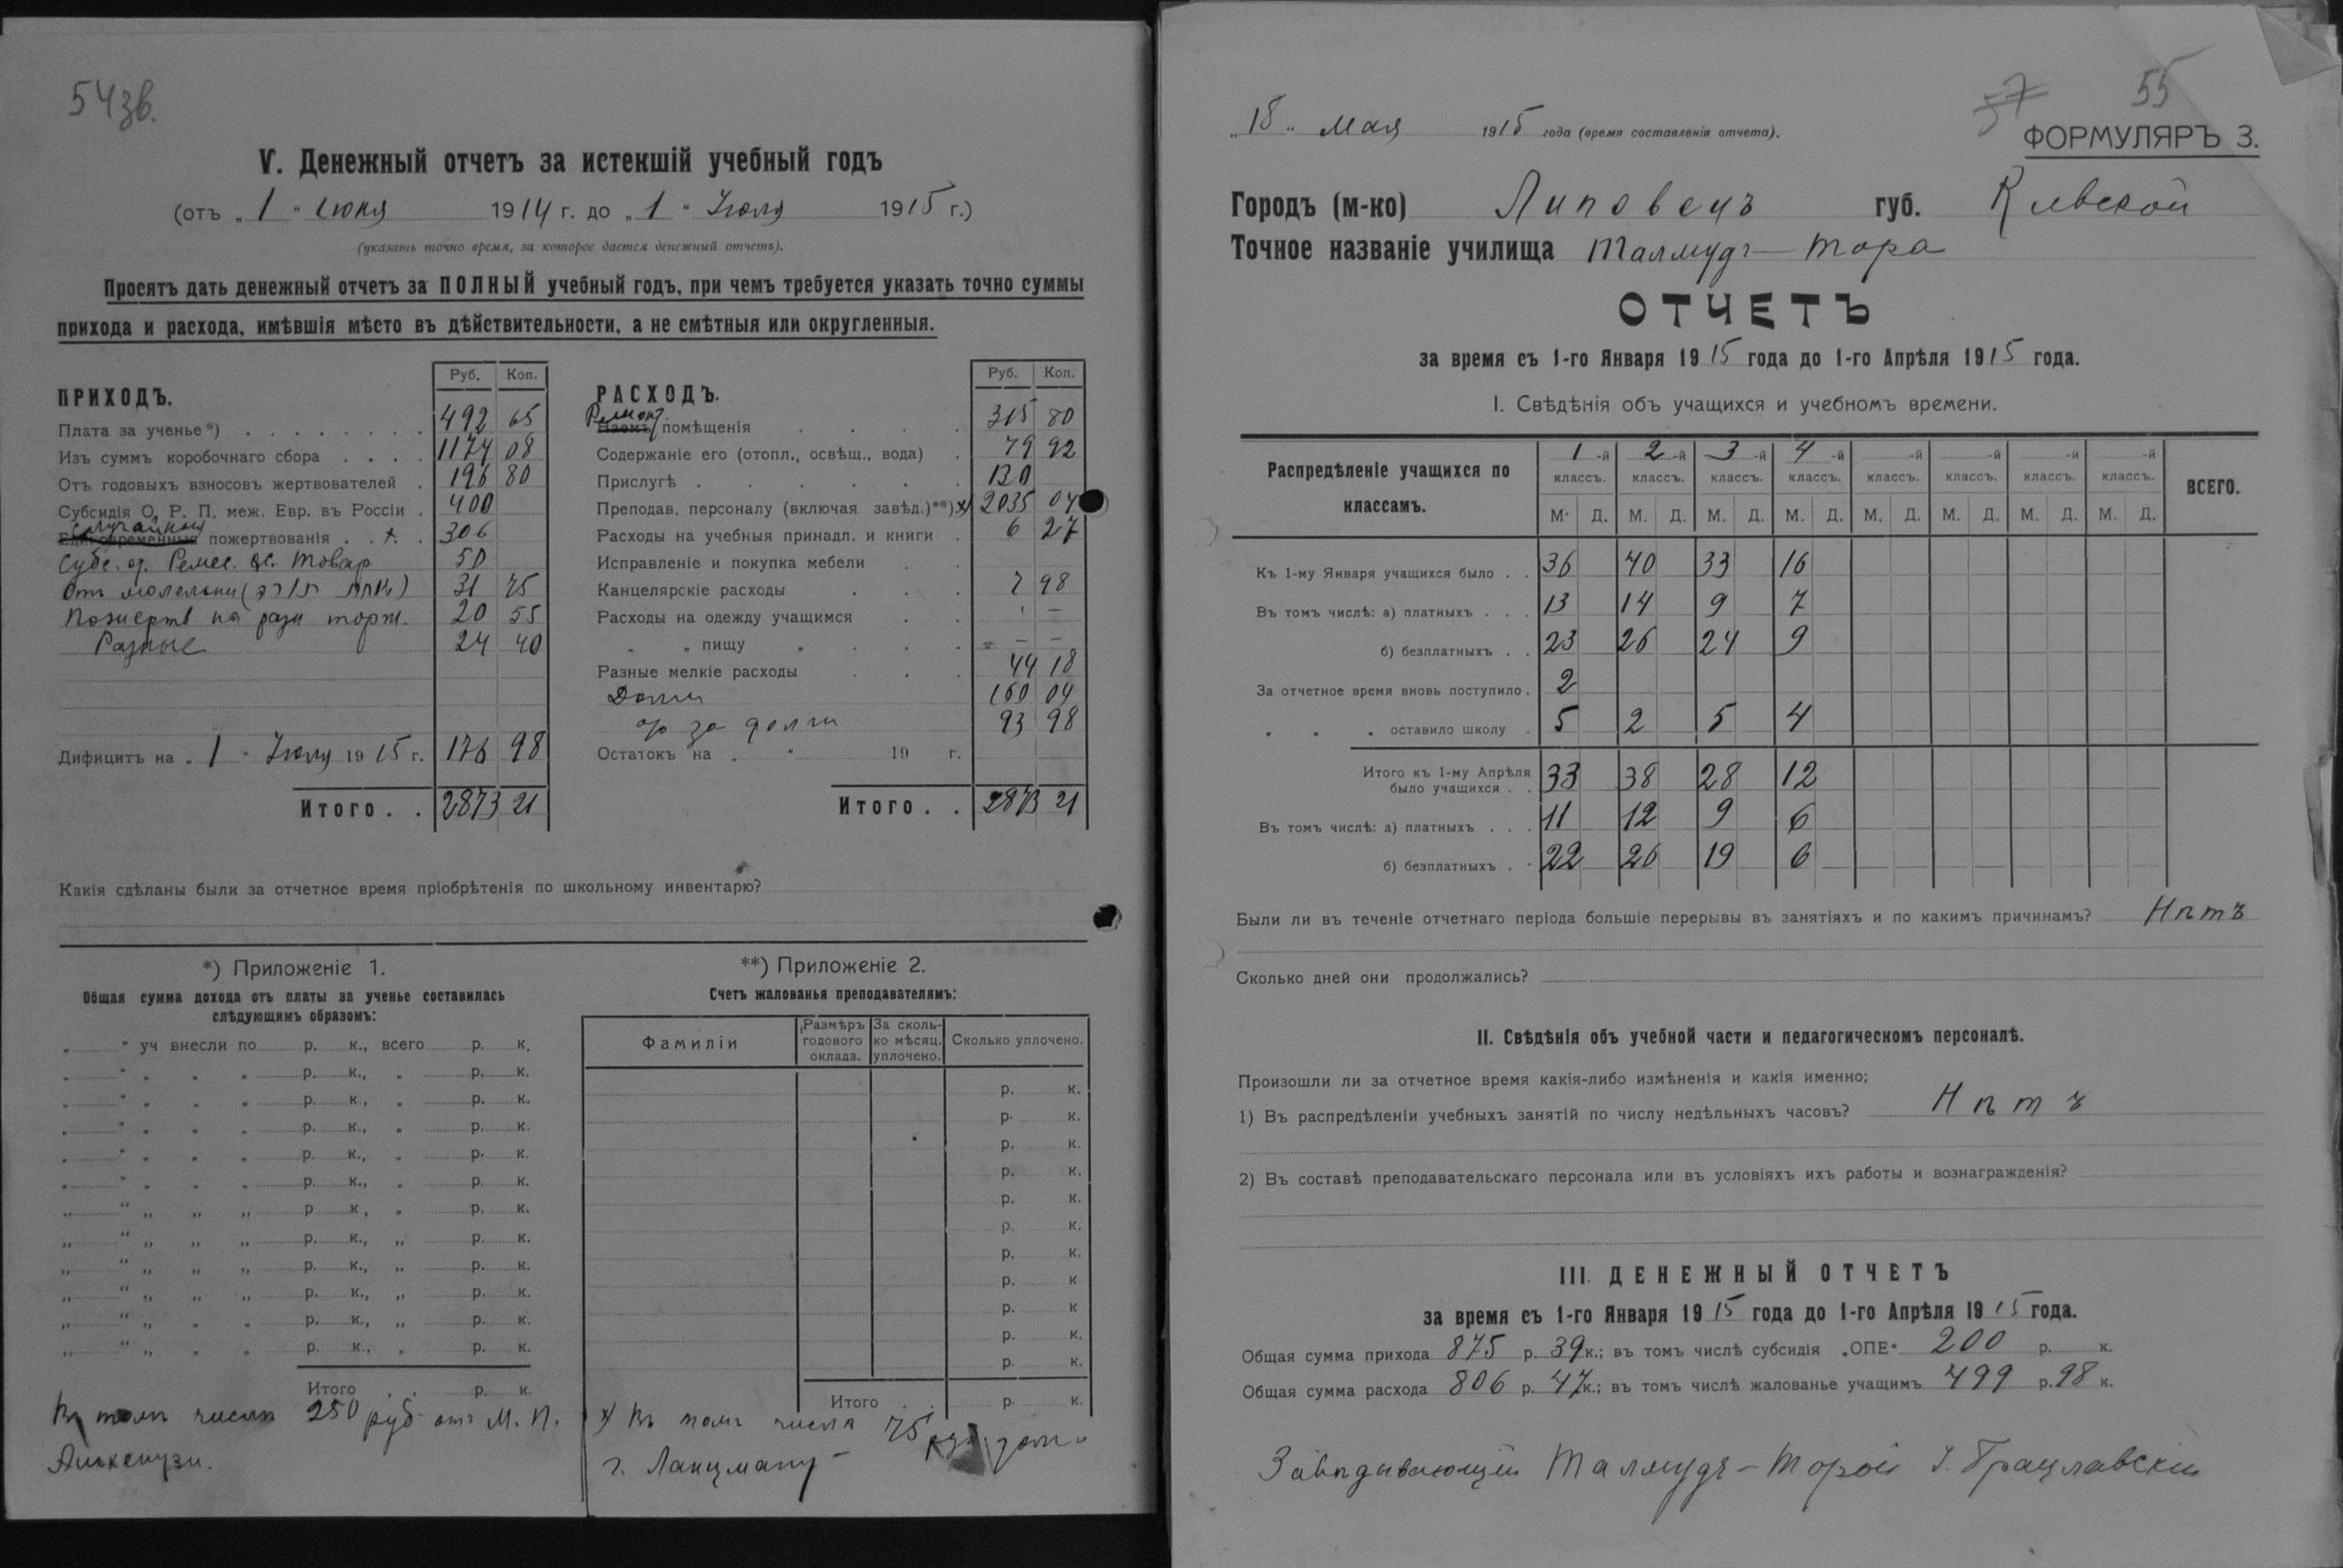 54зв.
V. Денежный отчетъ за истекшій учебный годъ
(отъ „ 1 " Іюня 1914 г. до „ 1 " Іюля 1915 г.)
(указать точно время, за которое дается денежный отчетъ).
Просятъ дать денежный отчетъ за ПОЛНЫЙ учебный годъ, при чемъ требуется указать точно суммы
прихода и расхода, имѣвшія мѣсто въ дѣйствительности, а не смѣтныя или округленныя.
ПРИХОДЪ. Руб. Коп.
Плата за ученье*) 492 65
Изъ суммъ коробочнаго сбора 1174 08
Отъ годовыхъ взносовъ жертвователей 196 80
Субсидія О. Р. П. меж. Евр. въ Россіи 400
случайныя
Единовременныя пожертвованія 306
Субс. от Ремес. ос. Товар 50
От молельни 31 75
Пожертв на разн торж. 20 55
Разные 24 40
Дифицитъ на „ 1 " Іюля 1915 г. 176 98
Итого 2873 21
РАСХОДЪ. Руб. Коп.
Ремонт
Наемъ помѣщенія 315 80
Содержаніе его (отопл., освѣщ., вода) 79 92
Прислугѣ 130
Преподав. персоналу (включая завѣд.)**) х) 2035 04
Расходы на учебныя принадл. и книги 6 27
Исправленіе и покупка мебели
Канцелярскіе расходы 7 98
Расходы на одежду учащимся —
" „ пищу „ — — —
Разные мелкіе расходы 44 18
Долги 160 04
% за долги 93 98
Остатокъ на „ " 19 г.
Итого 2873 21
Какія сдѣланы были за отчетное время пріобрѣтенія по школьному инвентарю?
*) Приложеніе 1.
Общая сумма дохода отъ платы за ученье составилась
слѣдующимъ образомъ:
„ " уч внесли по р. к., всего р. к.
„ " „ „ „ р. к., „ р. к.
„ " „ „ „ р. к., „ р. к.
„ " „ „ „ р. к., „ р. к.
„ " „ „ „ р. к., „ р. к.
„ " „ „ „ р. к., „ р. к.
„ " „ „ „ р. к., „ р. к.
„ " „ „ „ р. к., „ р. к.
„ " „ „ „ р. к., „ р. к.
„ " „ „ „ р. к., „ р. к.
„ " „ „ „ р. к., „ р. к.
„ " „ „ „ р. к., „ р. к.
Итого р. к.
В том числѣ 250 руб от М. П.
Ашкенузи.
**) Приложеніе 2.
Счетъ жалованья преподавателямъ:
Фамиліи Размѣръ годового оклада. За сколько мѣсяц. уплочено. Сколько уплочено.
р. к.
р. к.
р. к.
р. к.
р. к.
р. к.
р. к.
р. к
р. к
р. к.
р. к.
Итого р. к.
х) Въ томъ числѣ 75
г. Ланцману
55
57
„ 18 „ Мая 1915 года (время составленія отчета).
ФОРМУЛЯРЪ 3.
Городъ (м-ко) Липовецъ губ. Кіевской
Точное названіе училища Талмудъ-Тора
ОТЧЕТЪ
за время съ 1-го Января 1915 года до 1-го Апрѣля 1915 года.
I. Свѣдѣнія объ учащихся и учебномъ времени.
Распредѣленіе учащихся по классамъ. 1-й классъ. 2-й классъ. 3-й классъ. 4-й классъ. -й классъ. -й классъ. -й классъ. -й классъ. ВСЕГО.
М. Д. М. Д. М. Д. М. Д. М. Д. М. Д. М. Д. М. Д.
Къ 1-му Января учащихся было 36 40 33 16
Въ томъ числѣ: а) платныхъ 13 14 9 7
б) безплатныхъ 23 26 24 9
За отчетное время вновь поступило 2
„ „ „ оставило школу 5 2 5 4
Итого къ 1-му Апрѣля
было учащихся 33 38 28 12
Въ томъ числѣ: а) платныхъ 11 12 9 6
б) безплатныхъ 22 26 19 6
Были ли въ теченіе отчетнаго періода большіе перерывы въ занятіяхъ и по какимъ причинамъ? Нѣтъ
Сколько дней они продолжались?
II. Свѣдѣнія объ учебной части и педагогическомъ персоналѣ.
Произошли ли за отчетное время какія-либо измѣненія и какія именно:
1) Въ распредѣленіи учебныхъ занятій по числу недѣльныхъ часовъ? Нѣтъ
2) Въ составѣ преподавательскаго персонала или въ условіяхъ ихъ работы и вознагражденія?
III. ДЕНЕЖНЫЙ ОТЧЕТЪ
за время съ 1-го Января 1915 года до 1-го Апрѣля 1915 года.
Общая сумма прихода 875 р. 39 к.; въ томъ числѣ субсидія „ОПЕ" 200 р. к.
Общая сумма расхода 806 р. 47 к.; въ томъ числѣ жалованье учащимъ 499 р. 98 к.
Завѣдывающій Талмудъ-Торой